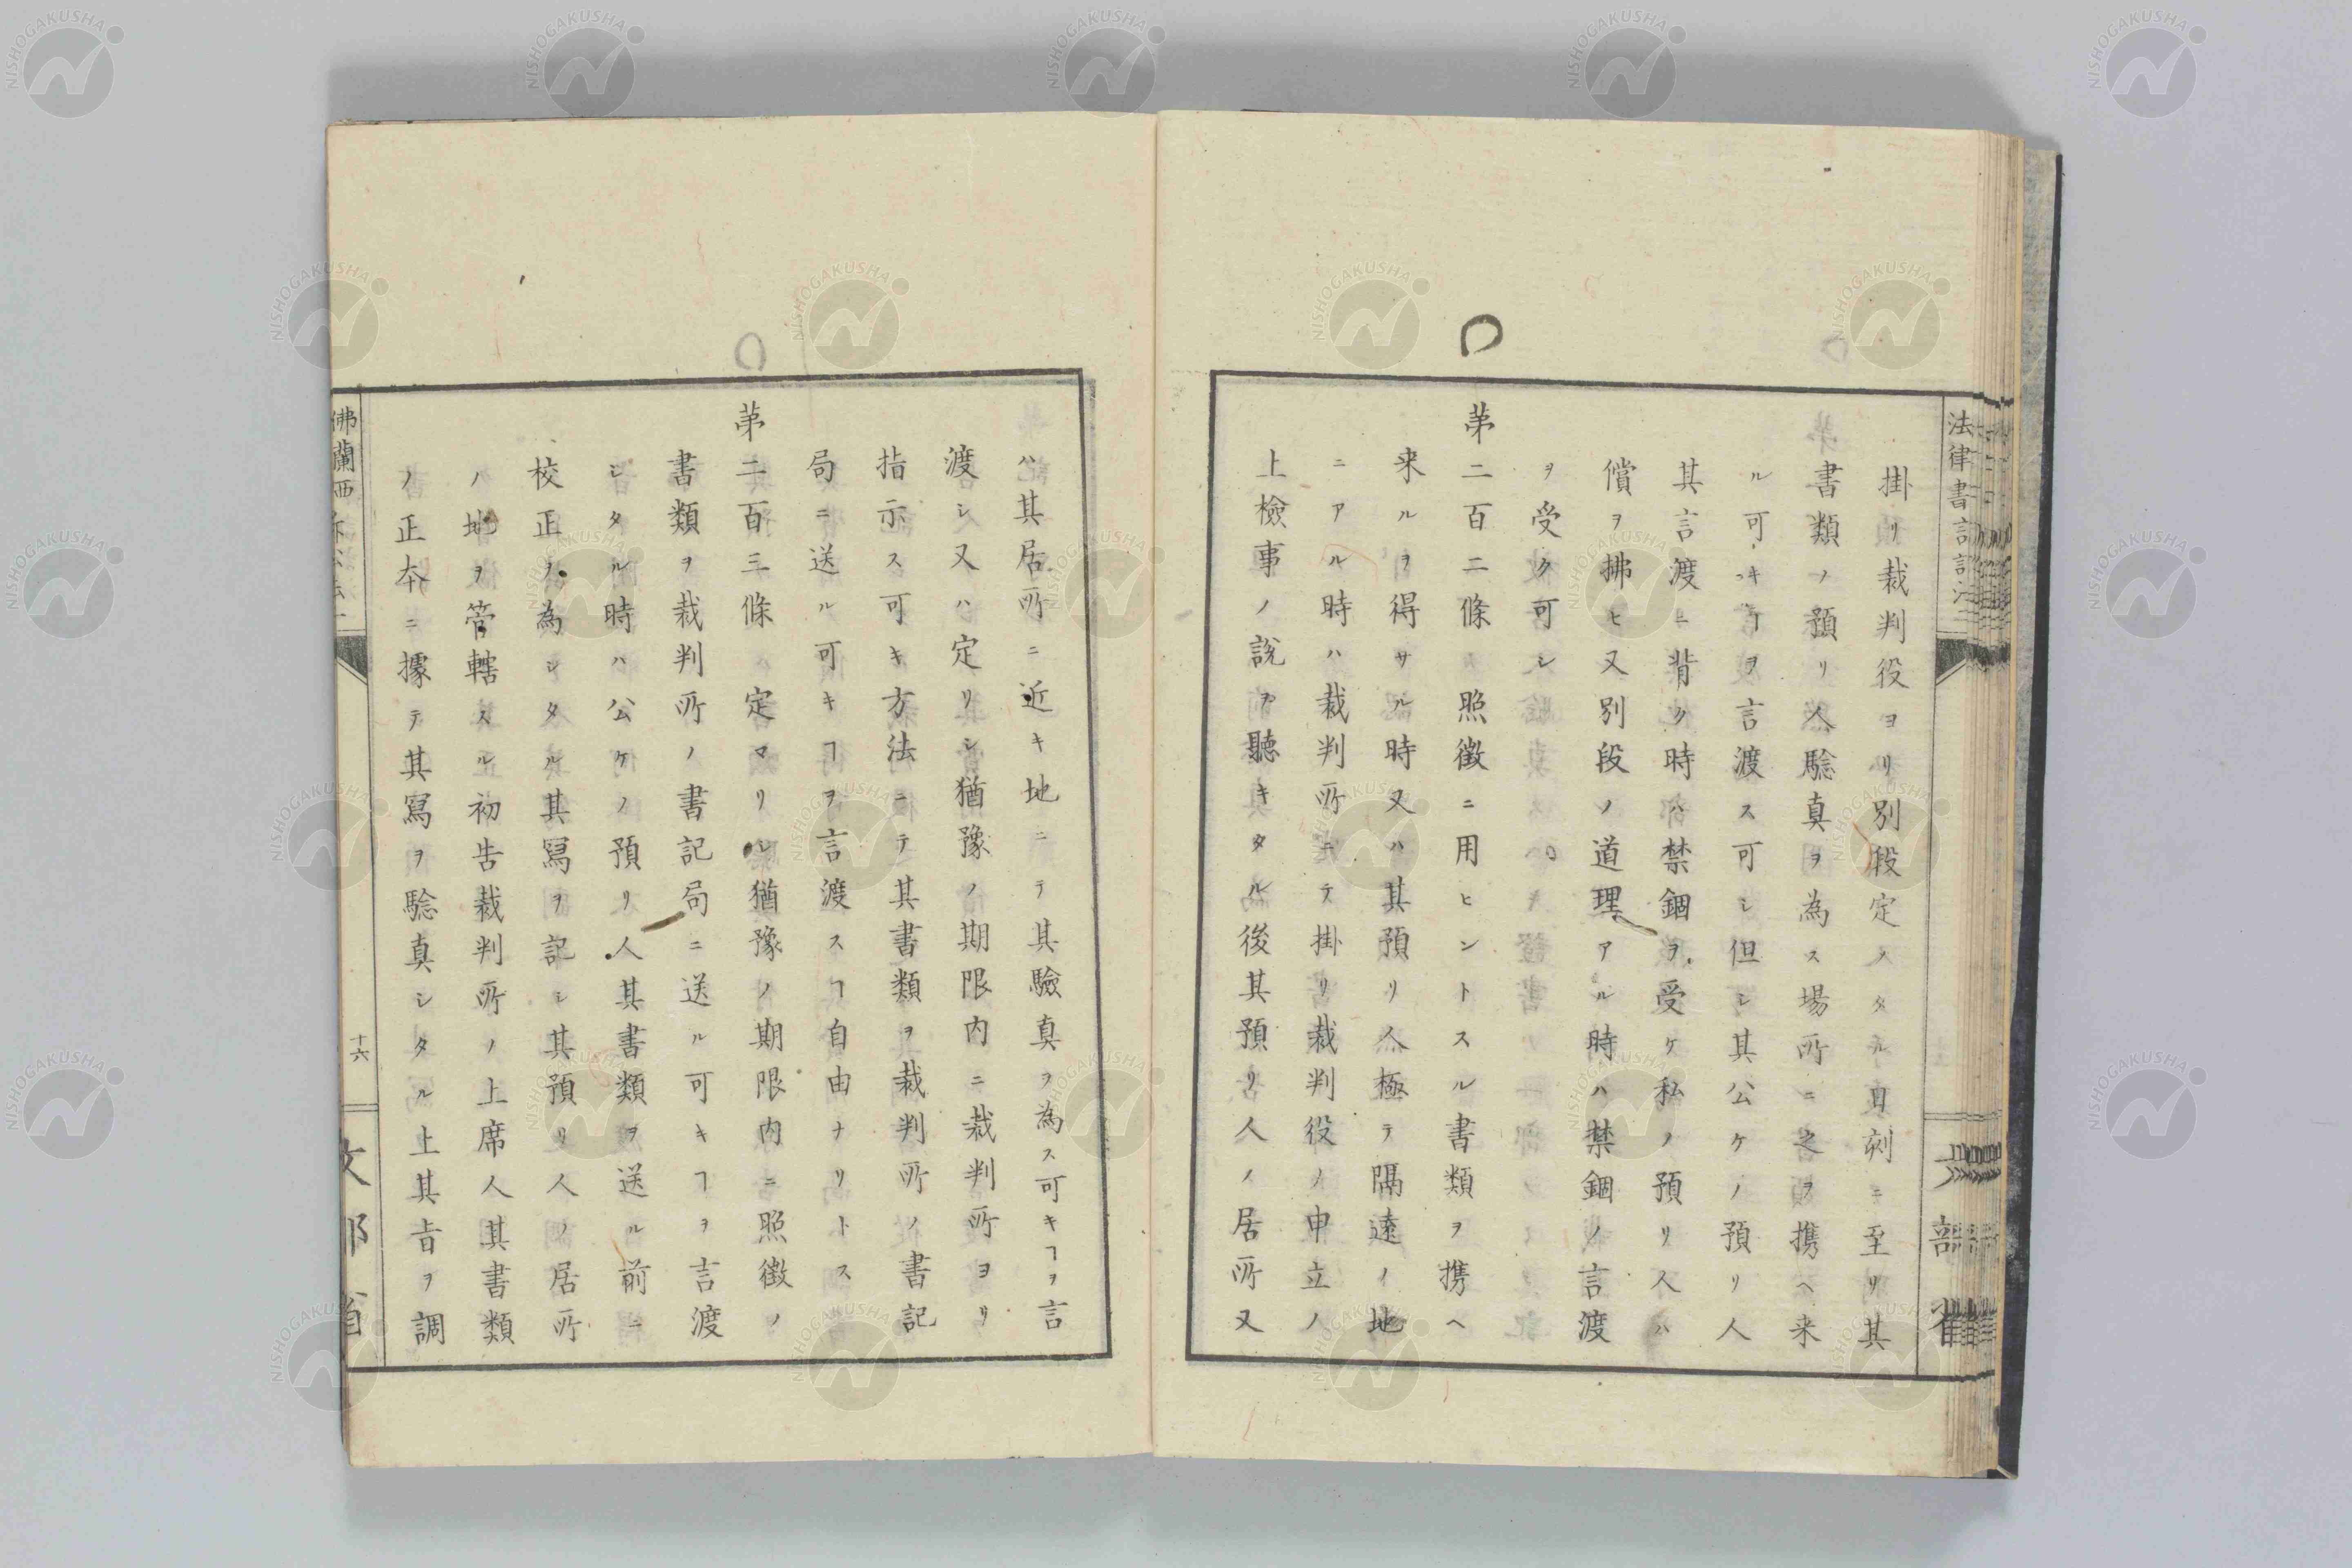 掛リ裁判役ヨリ別段定メタル日刻ニ至リ其
書類ノ預リ人驗真ヲ為ス場所ニ之ヲ携ヘ来
ル可キヿヲ言渡ス可シ但シ其公ケノ預リ人
其言渡ニ背ク時ハ禁錮ヲ受ケ私ノ預リ人ハ
償ヲ拂ヒ又別段ノ道理アル時ハ禁錮ノ言渡
ヲ受ク可シ
第二百二條 照徴ニ用ヒントスル書類ヲ携ヘ
来ルヲ得サル時又ハ其預リ人極テ隔遠ノ地
ニアル時ハ裁判所ニテ掛リ裁判役ノ申立ノ
上檢事ノ説ヲ聽キタル後其預リ人ノ居所又
ハ其居所ニ近キ地ニテ其驗真ヲ為ス可キヿヲ言
渡シ又ハ定リシ猶豫ノ期限内ニ裁判所ヨリ
指示ス可キ方法ニテ其書類ヲ裁判所ノ書記
局ニ送ル可キヿヲ言渡スヿ自由ナリトス
第二百三條 定マリシ猶豫ノ期限内ニ照徴ノ
書類ヲ裁判所ノ書記局ニ送ル可キヿヲ言渡
シタル時ハ公ケノ預リ人其書類ヲ送ル前ニ
校正ヲ為シタル其寫ヲ記シ其預リ人ノ居所
ノ地ヲ管轄スル初告裁判所ノ上席人其書類
ノ正本ニ據テ其寫ヲ驗真シタル上其旨ヲ調
佛蘭西
十六
文部省
NISHOGAKUSHA